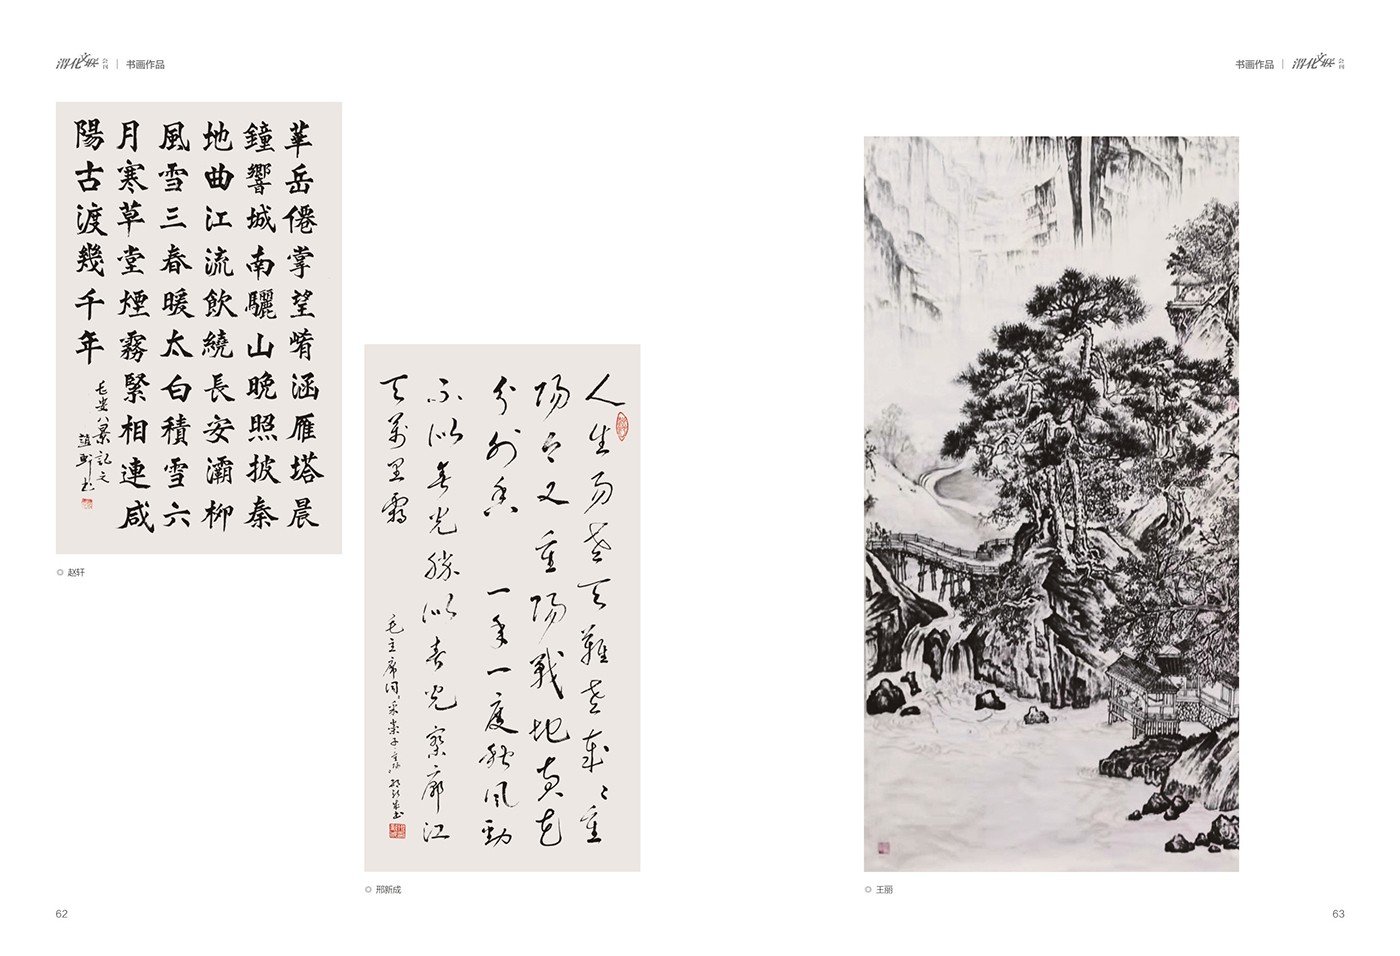 渭化文联 会刊 | 书画作品
書画作品 | 渭化文联 会刊
華岳僊掌望崤涵雁塔晨
鐘響城南驪山晚照披秦
地曲江流飲繞長安灞柳
風雪三春暖太白積雪六
月寒草堂煙霧緊相連咸
陽古渡幾千年
長安八景記之
趙軒書
赵轩
人生易老天難老歲歲重
陽今又重陽戰地黄花
分外香 一年一度秋風勁
不似春光勝似春光寥廓江
天萬里霜
毛主席词采桑子重陽 邢新成书
邢新成
王丽
62
63